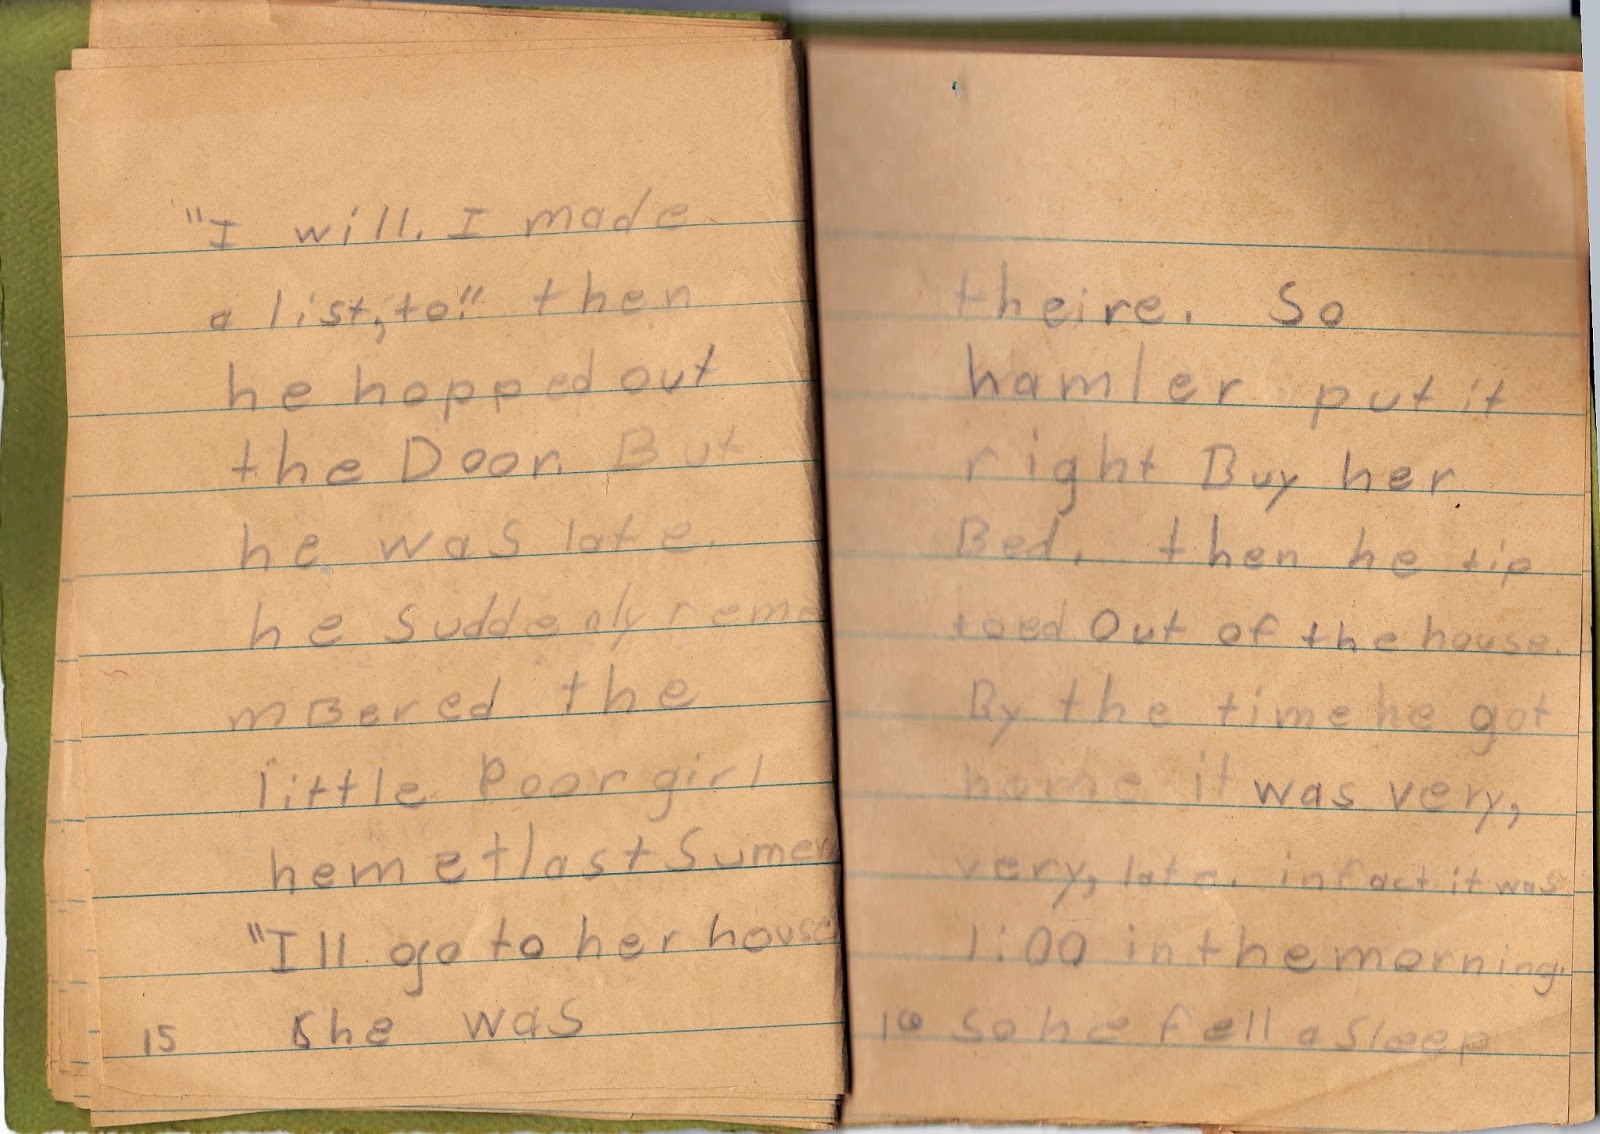 "I will. I made
a list, to". then
he hopped out
the Door. But
he was late.
he Suddenly reme
mBered the
little Poor girl
he met last Sumer
"I ll go to her house
She was
15
theire. So
hamler put it
right Buy her
Bed. then he tip
toed Out of the house.
By the time he got
home it was very,
very, late. in fact it was
1:00 in the morning.
16 So he fell asleep